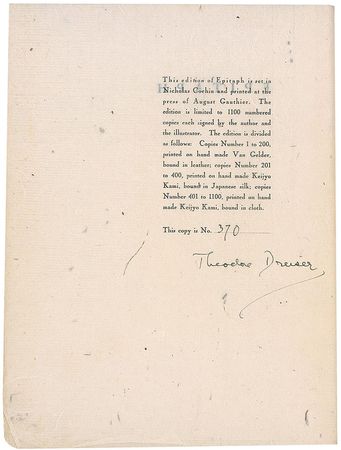 This edition of Epitaph is set in
Nicholas Cochin and printed at the
press of August Gauthier. The
edition is limited to 1100 numbered
copies each signed by the author and
the illustrator. The edition is divided
as follows: Copies Number 1 to 200,
printed on hand made Van Gelder,
bound in leather; copies Number 201
to 400, printed on hand made Keijyo
Kami, bound in Japanese silk; copies
Number 401 to 1100, printed on hand
made Keijyo Kami, bound in cloth.
This copy is No. 370
Theodore Dreiser